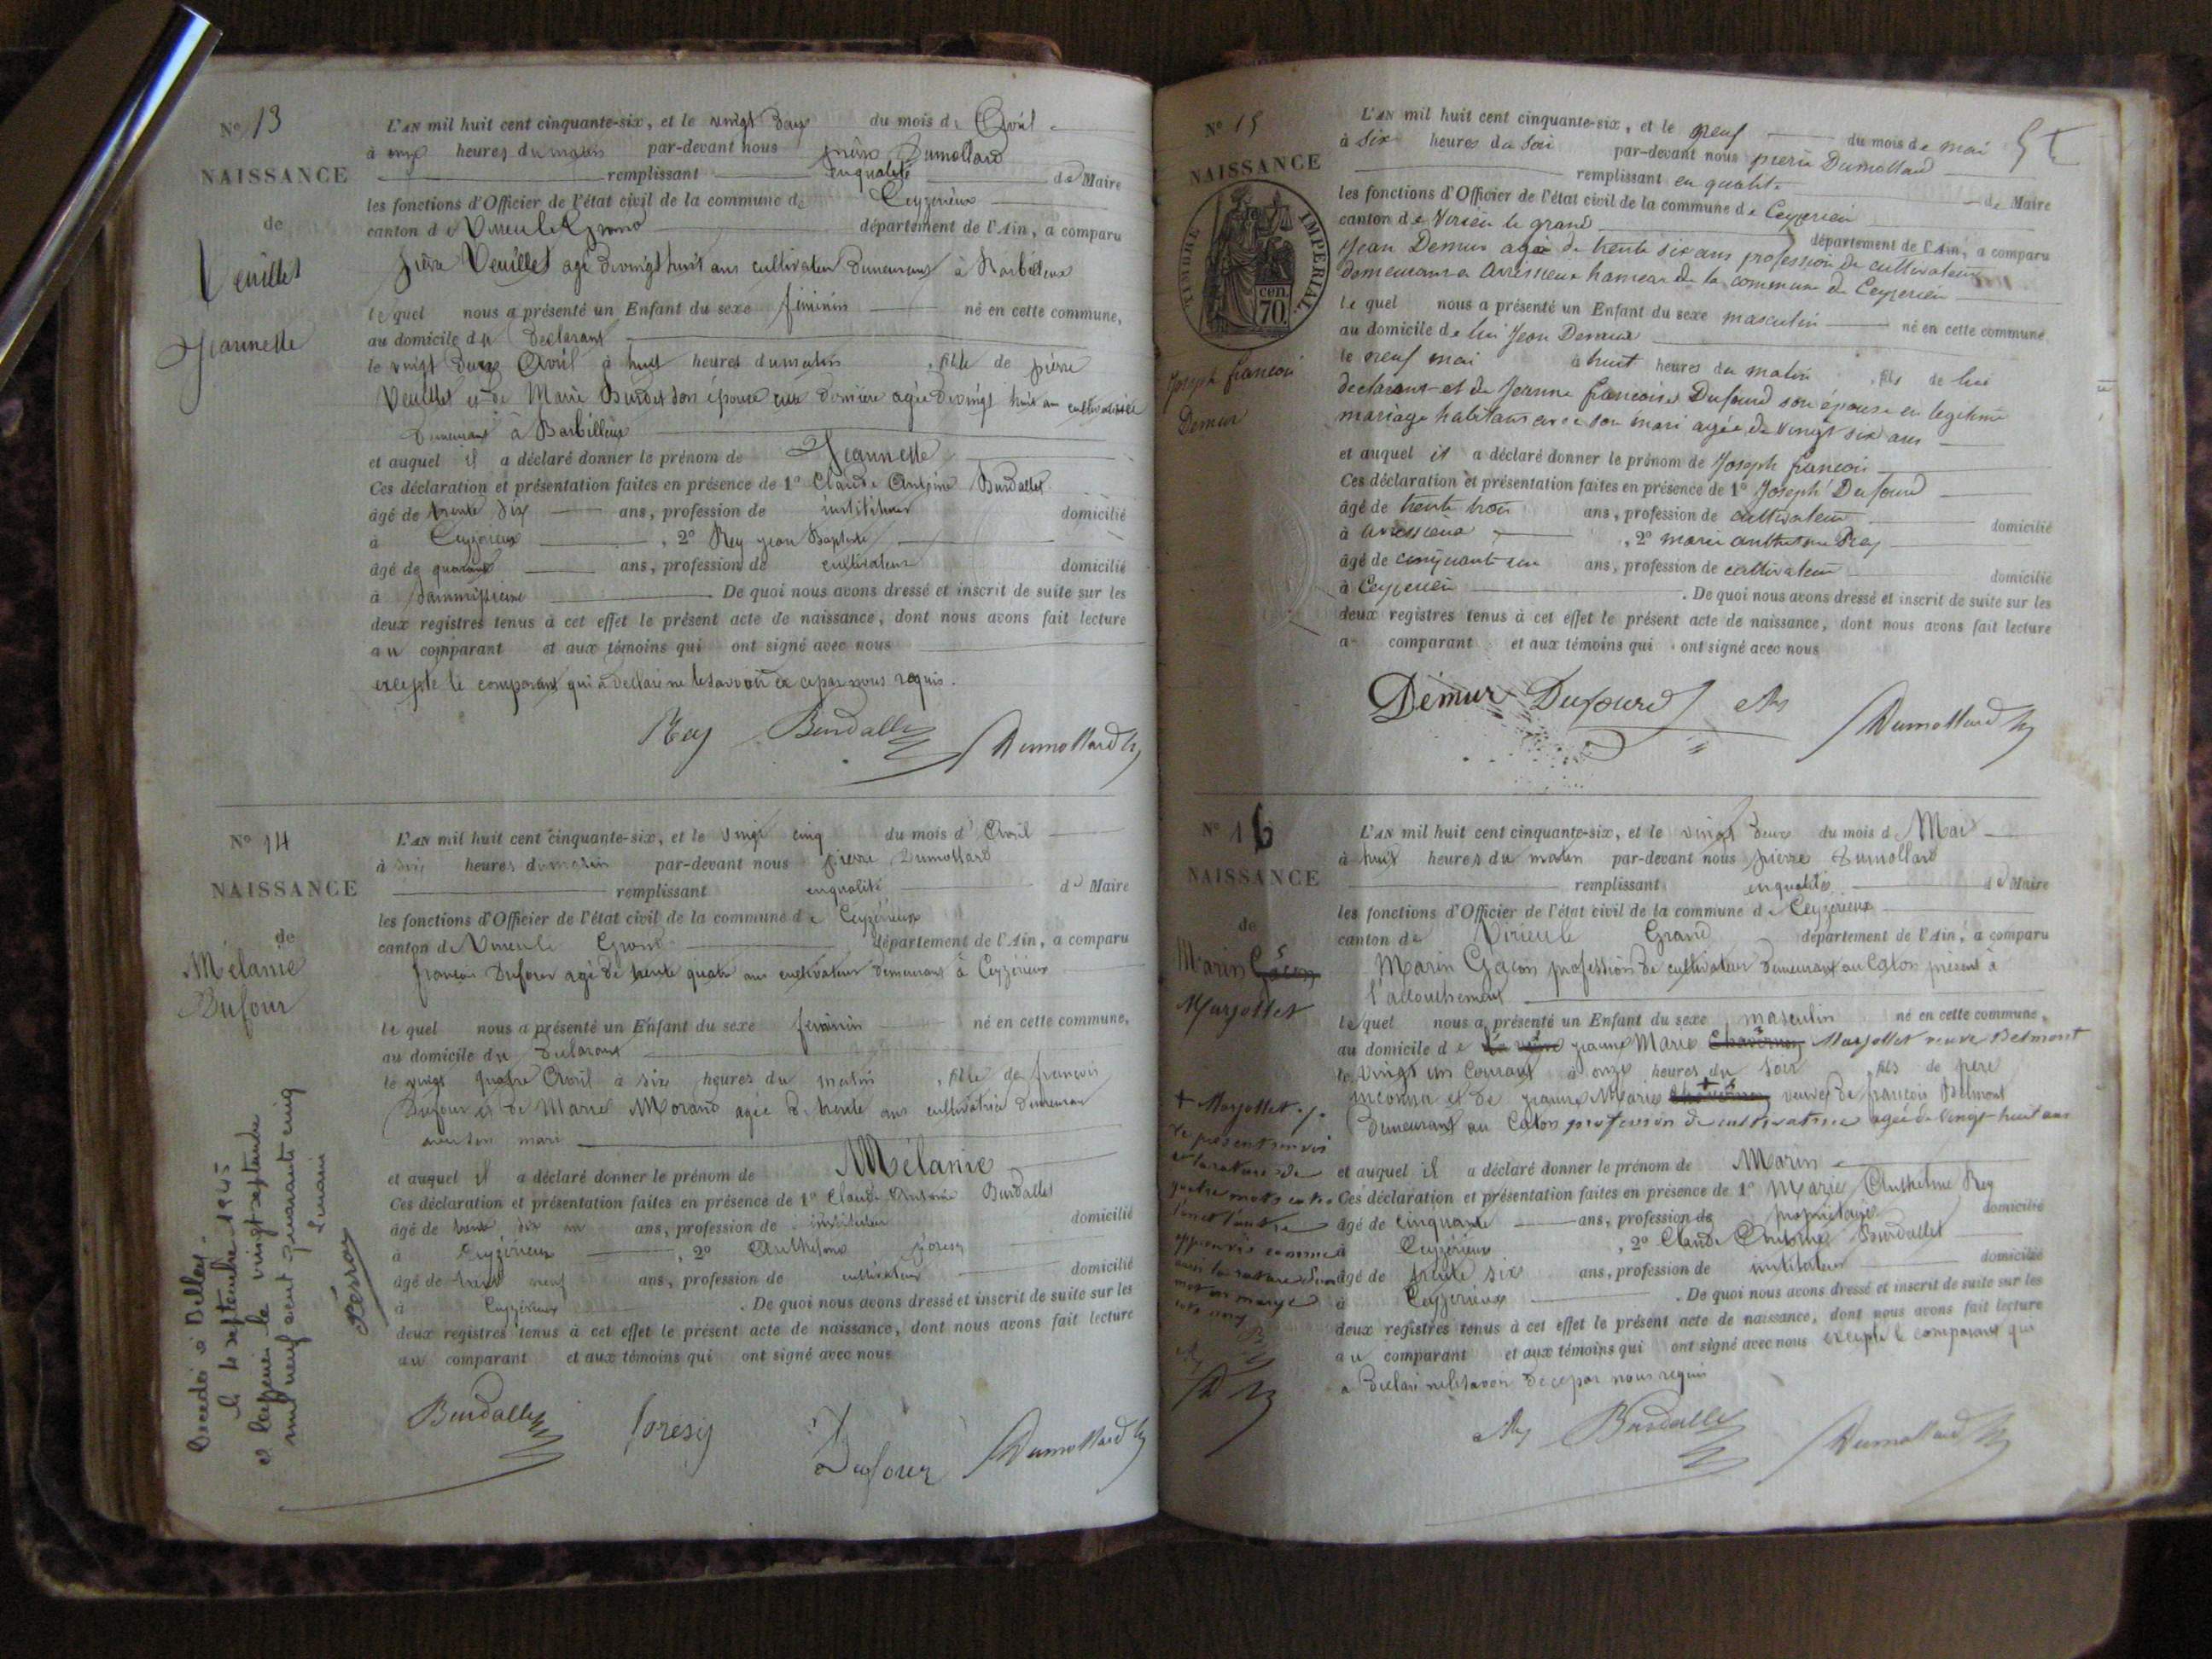 N° 13
NAISSANCE
de
Veuillet
Jeannette
L'AN mil huit cent cinquante-six, et le vingt deux du mois d'Avril
à onze heures du matin par-devant nous pierre Dumollard
remplissant en qualité de Maire
les fonctions d'Officier de l'état civil de la commune de Ceyzérieux
canton de Virieu le Grand département de l'Ain, a comparu
pierre Veuillet agé de vingt huit ans cultivateur demeurant à Barbilleux
lequel nous a présenté un Enfant du sexe féminin né en cette commune,
au domicile du Déclarant
le vingt deux Avril à huit heures du matin, fille de pierre
Veuillet et de Marie Burdet son épouse cette dernière agée de vingt huit ans cultivatrice
demeurant à Barbilleux
et auquel il a déclaré donner le prénom de Jeannette
Ces déclaration et présentation faites en présence de 1° Claude Antoine Burdallet
âgé de trente six ans, profession de instituteur domicilié
à Ceyzérieux, 2° Rey jean Baptiste
âgé de quarante ans, profession de cultivateur domicilié
à De quoi nous avons dressé et inscrit de suite sur les
deux registres tenus à cet effet le présent acte de naissance, dont nous avons fait lecture
au comparant et aux témoins qui ont signé avec nous
excepté le comparant qui a déclaré ne le savoir de ce par nous requis.
Rey Burdallet Dumollard
N° 14
NAISSANCE
de
Mélanie
Dufour
L'AN mil huit cent cinquante-six, et le vingt cinq du mois d'Avril
à six heures du matin par-devant nous pierre Dumollard
remplissant en qualité de Maire
les fonctions d'Officier de l'état civil de la commune de Ceyzérieux
canton de Virieu le Grand département de l'Ain, a comparu
françois Dufour agé de trente quatre ans cultivateur demeurant à Ceyzérieux
lequel nous a présenté un Enfant du sexe feminin né en cette commune,
au domicile du declarant
le vingt quatre Avril à six heures du matin, fille de françois
Dufour et de Marie Morand agée de trente ans cultivatrice demeurant
avec son mari
et auquel il a déclaré donner le prénom de Mélanie
Ces déclaration et présentation faites en présence de 1° Claude Antoine Burdallet
âgé de trente six ans, profession de instituteur domicilié
à Ceyzérieux, 2° Anthelme joresy
âgé de trente neuf ans, profession de cultivateur domicilié
à Ceyzérieux. De quoi nous avons dressé et inscrit de suite sur les
deux registres tenus à cet effet le présent acte de naissance, dont nous avons fait lecture
au comparant et aux témoins qui ont signé avec nous
Burdallet joresy Dufour Dumollard
Décédée à Belley
le 4 septembre 1945
mil neuf cent quarante cinq
N° 15
NAISSANCE
TIMBRE IMPERIAL
70 cen.
Joseph francois
Demur
L'AN mil huit cent cinquante-six, et le neuf du mois de mai
à six heures du soir par-devant nous pierre Dumollard
remplissant en qualité de Maire
les fonctions d'Officier de l'état civil de la commune de Ceyzerieu
canton de Virieu le grand département de l'Ain, a comparu
Jean Demur agé de trente six ans profession de cultivateur
demeurant a Avressieux hameau de la commune de Ceyzerieu
le quel nous a présenté un Enfant du sexe masculin né en cette commune
au domicile de lui Jean Demur
le neuf mai à huit heures du matin, fils de lui
declarant et de Jeanne francoise Dufourd son épouse en legitime
mariage habitant avec son mari agée de vingt six ans
et auquel il a déclaré donner le prénom de Joseph francois
Ces déclaration et présentation faites en présence de 1° Joseph Dufourd
âgé de trente trois ans, profession de cultivateur domicilié
à avressieux, 2° marie anthelme Rey
âgé de cinquante ans, profession de cultivateur domicilié
à Ceyzerieu. De quoi nous avons dressé et inscrit de suite sur les
deux registres tenus à cet effet le présent acte de naissance, dont nous avons fait lecture
a comparant et aux témoins qui ont signé avec nous
Démur Dufourd Rey Dumollard
N° 16
NAISSANCE
de
Marin Gacon
Marjollet
L'AN mil huit cent cinquante-six, et le vingt deux du mois de Mai
à huit heures du matin par-devant nous pierre Dumollard
remplissant en qualité de Maire
les fonctions d'Officier de l'état civil de la commune de Ceyzérieux
canton de Virieu le Grand département de l'Ain, a comparu
Marin Gacon profession de cultivateur demeurant au Caton présent à
l'accouchement
lequel nous a présenté un Enfant du sexe masculin né en cette commune,
au domicile de jeanne Marie Marjollet veuve Belmont
le vingt un Courant à onze heures du soir fils de père
inconnu et de jeanne Marie veuve de françois Belmont
demeurant au Caton profession de cultivatrice agée de vingt-huit ans
et auquel il a déclaré donner le prénom de Marin
Ces déclaration et présentation faites en présence de 1° Marie Anthelme Rey
âgé de cinquante ans, profession de propriétaire domicilié
à Ceyzérieux, 2° Claude Antoine Burdallet
âgé de trente six ans, profession de instituteur domicilié
à Ceyzerieux. De quoi nous avons dressé et inscrit de suite sur les
deux registres tenus à cet effet le présent acte de naissance, dont nous avons fait lecture
au comparant et aux témoins qui ont signé avec nous excepté le comparant qui
a déclaré ne le savoir de ce par nous requis
+ Marjollet
le présent renvoi
et la rature de
quatre mots
Rey Burdallet Dumollard